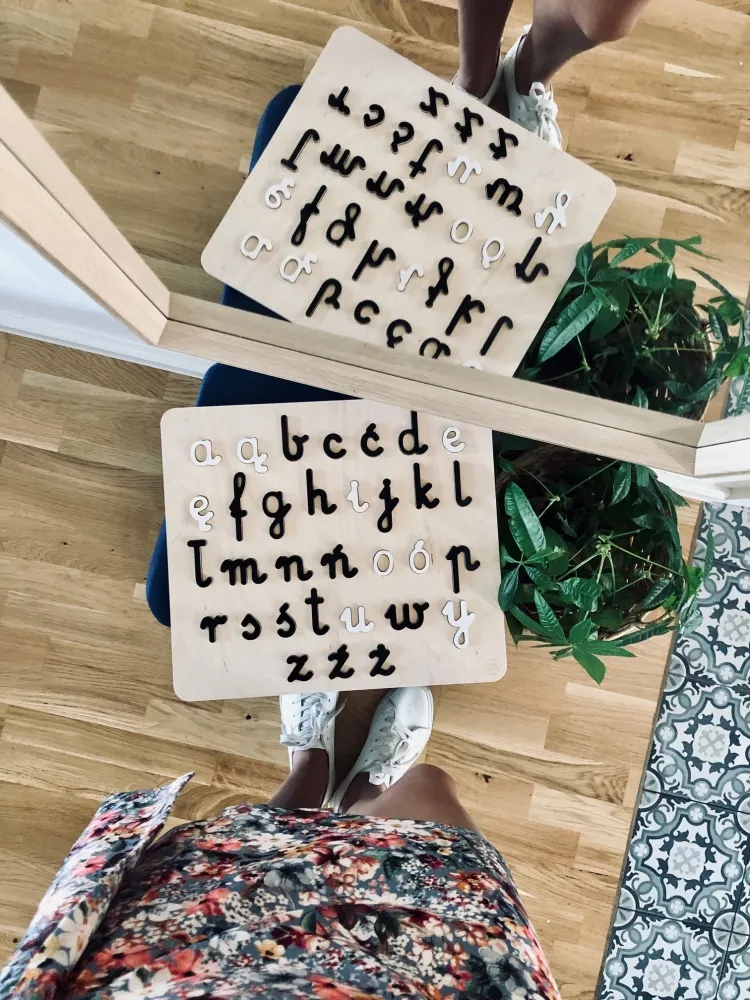 a ą b c ć d e
ę f g h i j k l
ł m n ń o ó p
r s ś t u w y
z ź ż